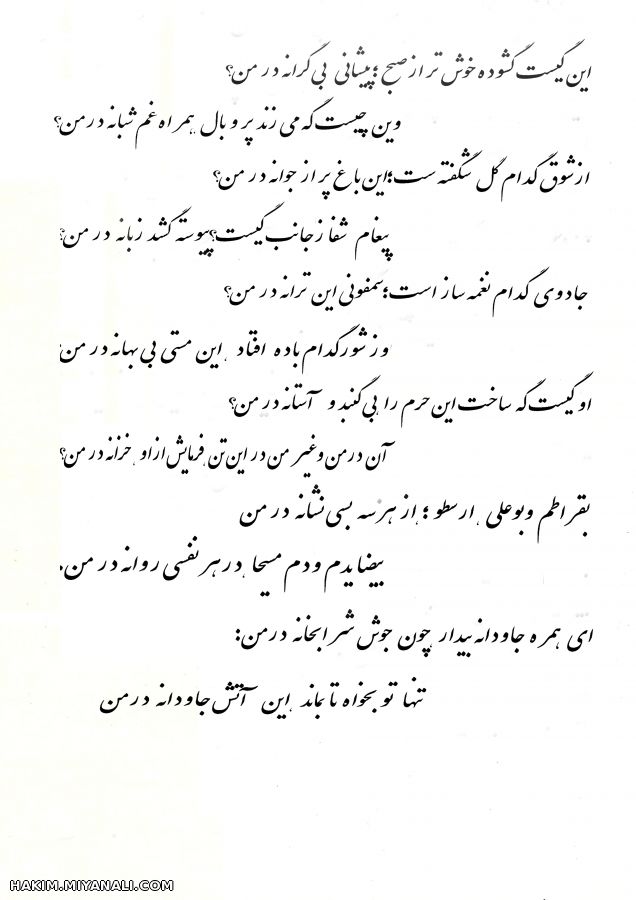 این کیست گشوده خوش تر از صبح ؛ پیشانی بی کرانه در من؟
وین چیست که می زند پر و بال همراه غم شبانه در من؟
از شوق کدام گل شگفته ست؛ این باغ پر از جوانه در من؟
پیغام شفا ز جانب کیست؟ پیوسته کشد زبانه در من؟
جادوی کدام نغمه ساز است؛ سمفونی این ترانه در من؟
وز شور کدام باده افتاد این مستی بی بهانه در من؟
او کیست که ساخت این حرم را بی گنبد و آستانه در من؟
آن در من و غیر من در این تن فرمایش از او خزانه در من؟
بقراطم و بوعلی ارسطو ؛ از هر سه بسی نشانه در من
بیضا یدم و دم مسیحا در هر نفسی روانه در من.
ای همره جاودانه بیدار چون جوش شرابخانه در من:
تنها تو بخواه تا بماند این آتش جاودانه در من
HAKIM.MIYANALI.COM